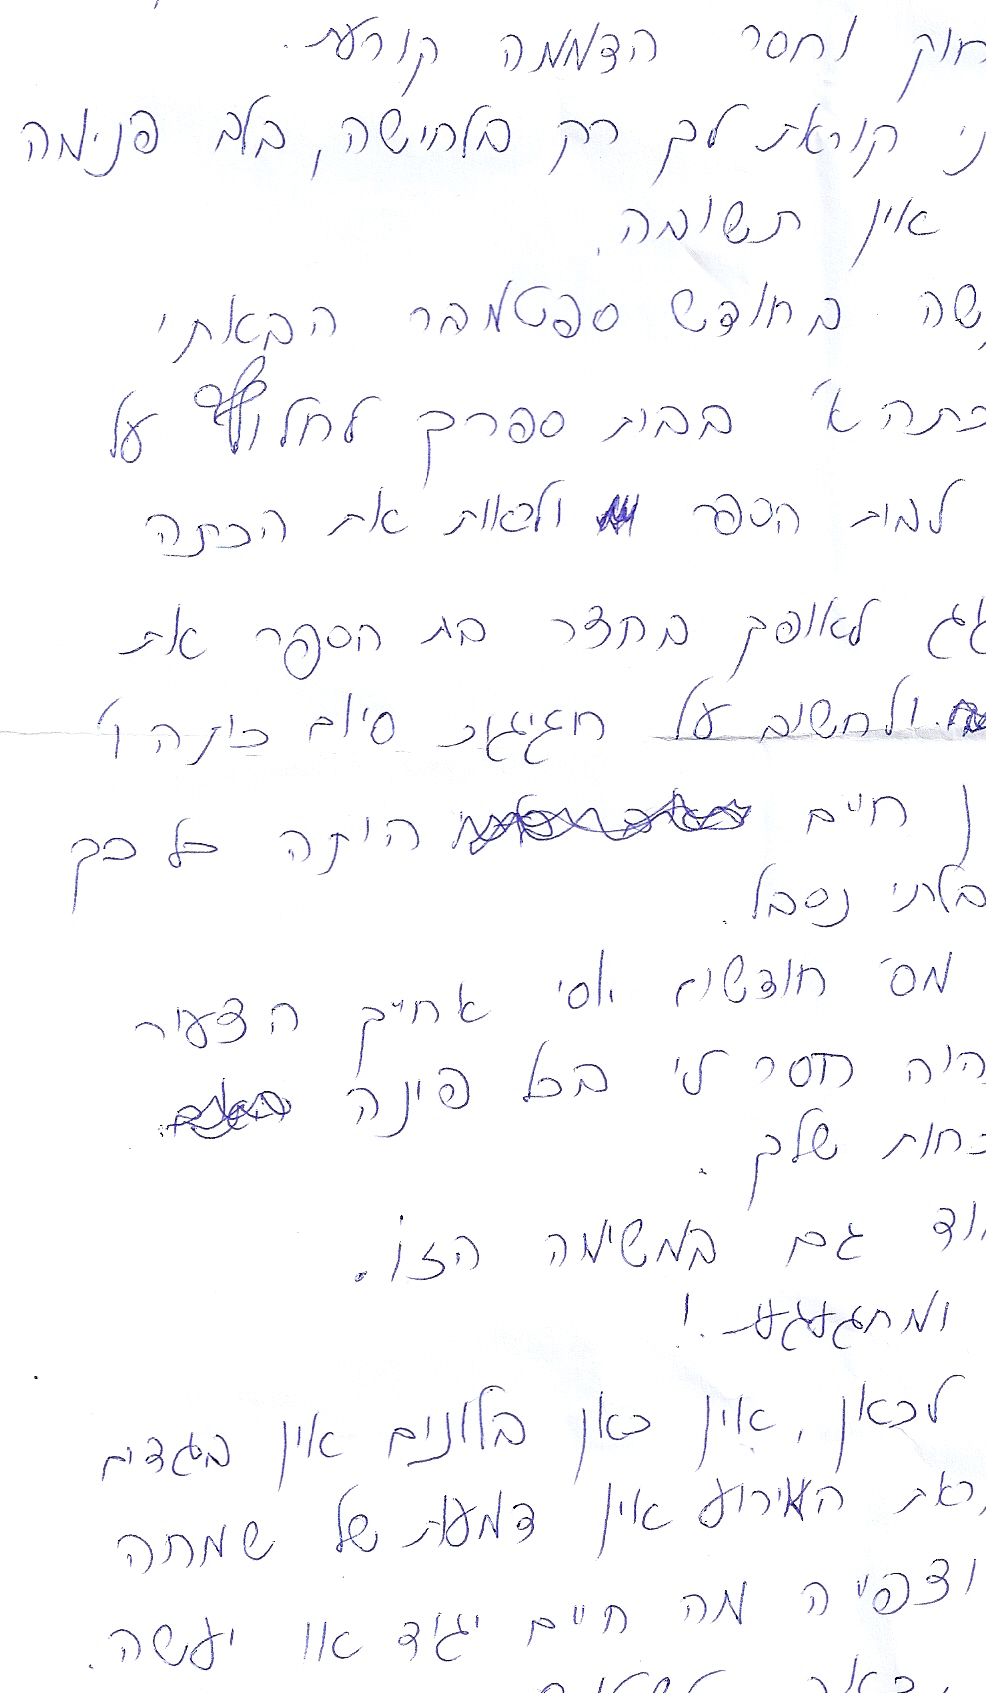 חוק וחסר הדממה קורעת.
ני קוראת לך רק בלחישה, בלב פנימה
אין תשובה.
שה בחודש ספטמבר הבאתי
כתה א' בבית ספרך לחלוף על
לבית הספר ולראות את הכתה
גג לאופק בחצר בת הספר את
ולחשוב על חגיגת סיום כיתה ו'
ן חיים היתה כל כך
בלתי נסבל.
מס' חודשים יוסי אחיך הצעיר
היה חסר לי בכל פינה
כחות שלך.
וד גם במשימה הזו.
ומתגעגעת.!
לכאן, אין כאן בלונים אין בגדים
ראת האירוע אין דמעות של שמחה
וצפייה מה חיים יגיד או יעשה.